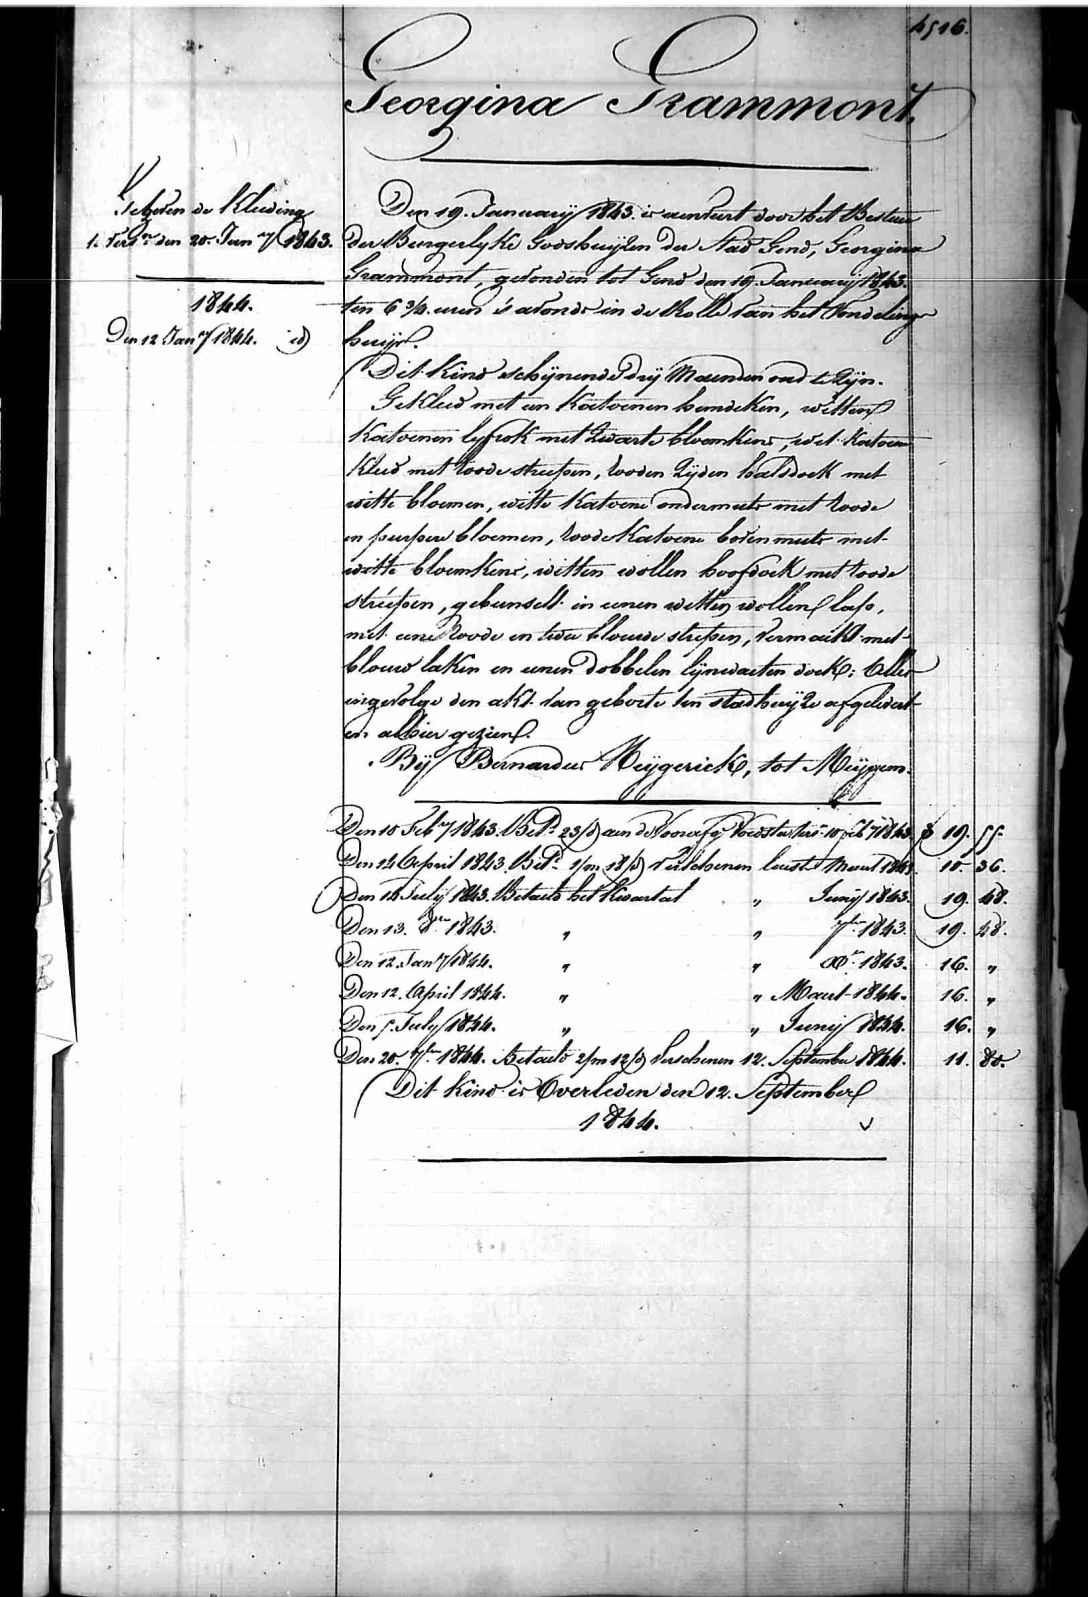 4516.
Georgina Grammont.
Gegeven de Kleeding
1. Vers.re den 20. Jan.ry 1843.
1844.
Den 12 Jan.ry 1844. id
Den 19. January 1843. is aenveert door het Bestuur
der Burgerlyke Godshuyzen der Stad Gend, Georgina
Grammont, gevonden tot Gend den 19. January 1843.
ten 6 3/4. uren 's avonds in de Rolle van het Vondeling-
huys.
Dit Kind schijnende dry Maenden oud te zyn.
Gekleed met een Katoenen hemdeken, witten
Katoenen lyfrok met zwarte bloemkens, wit Katoen
Kleed met roode streepen, rooden zyden halsdoek met
witte bloemen, witte Katoene ondermuts met roode
en purpere bloemen, roode Katoene bovenmuts met
witte bloemkens, witten wollen hoofdoek met roode
streepen, gebunselt in eenen witten wollen lap,
met eene roode en twee blauwe strepen, vermaekt met
blouw laken en eenen dobbelen lynwaeten doek; Alles
ingevolge den akt van geboorte ten stadhuyze afgelevert
en alhier gezien.
By Bernardus Meygerick, tot Meygem.
Den 10 Feb.ry 1843. Bet.d 23/d aen de Voorafg. Voedster 10 feb.ry 1843. 19. 55.
Den 14 April 1843 Bet.d 1/m 18/d Verschenen laest Maert 1843. 10. 36.
Den 14 July 1843. Betaeld het Kwartael " Juny 1843. 19. 48.
Den 13. 8.bre 1843. " " 7.bre 1843. 19. 48.
Den 12. Jan.ry 1844. " " X.bre 1843. 16. "
Den 12. April 1844. " " Maert 1844. 16. "
Den 5. July 1844. " " Juny 1844. 16. "
Den 20. 7.bre 1844. Betaeld 2/m 12/d Verschenen 12. September 1844. 11. 80.
Dit Kind is Overleden den 12. September
1844.